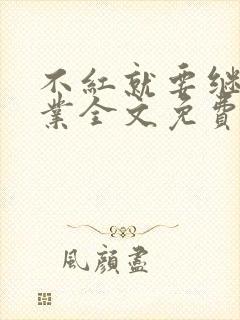 不紅就要继
業全文免費
風顏盡